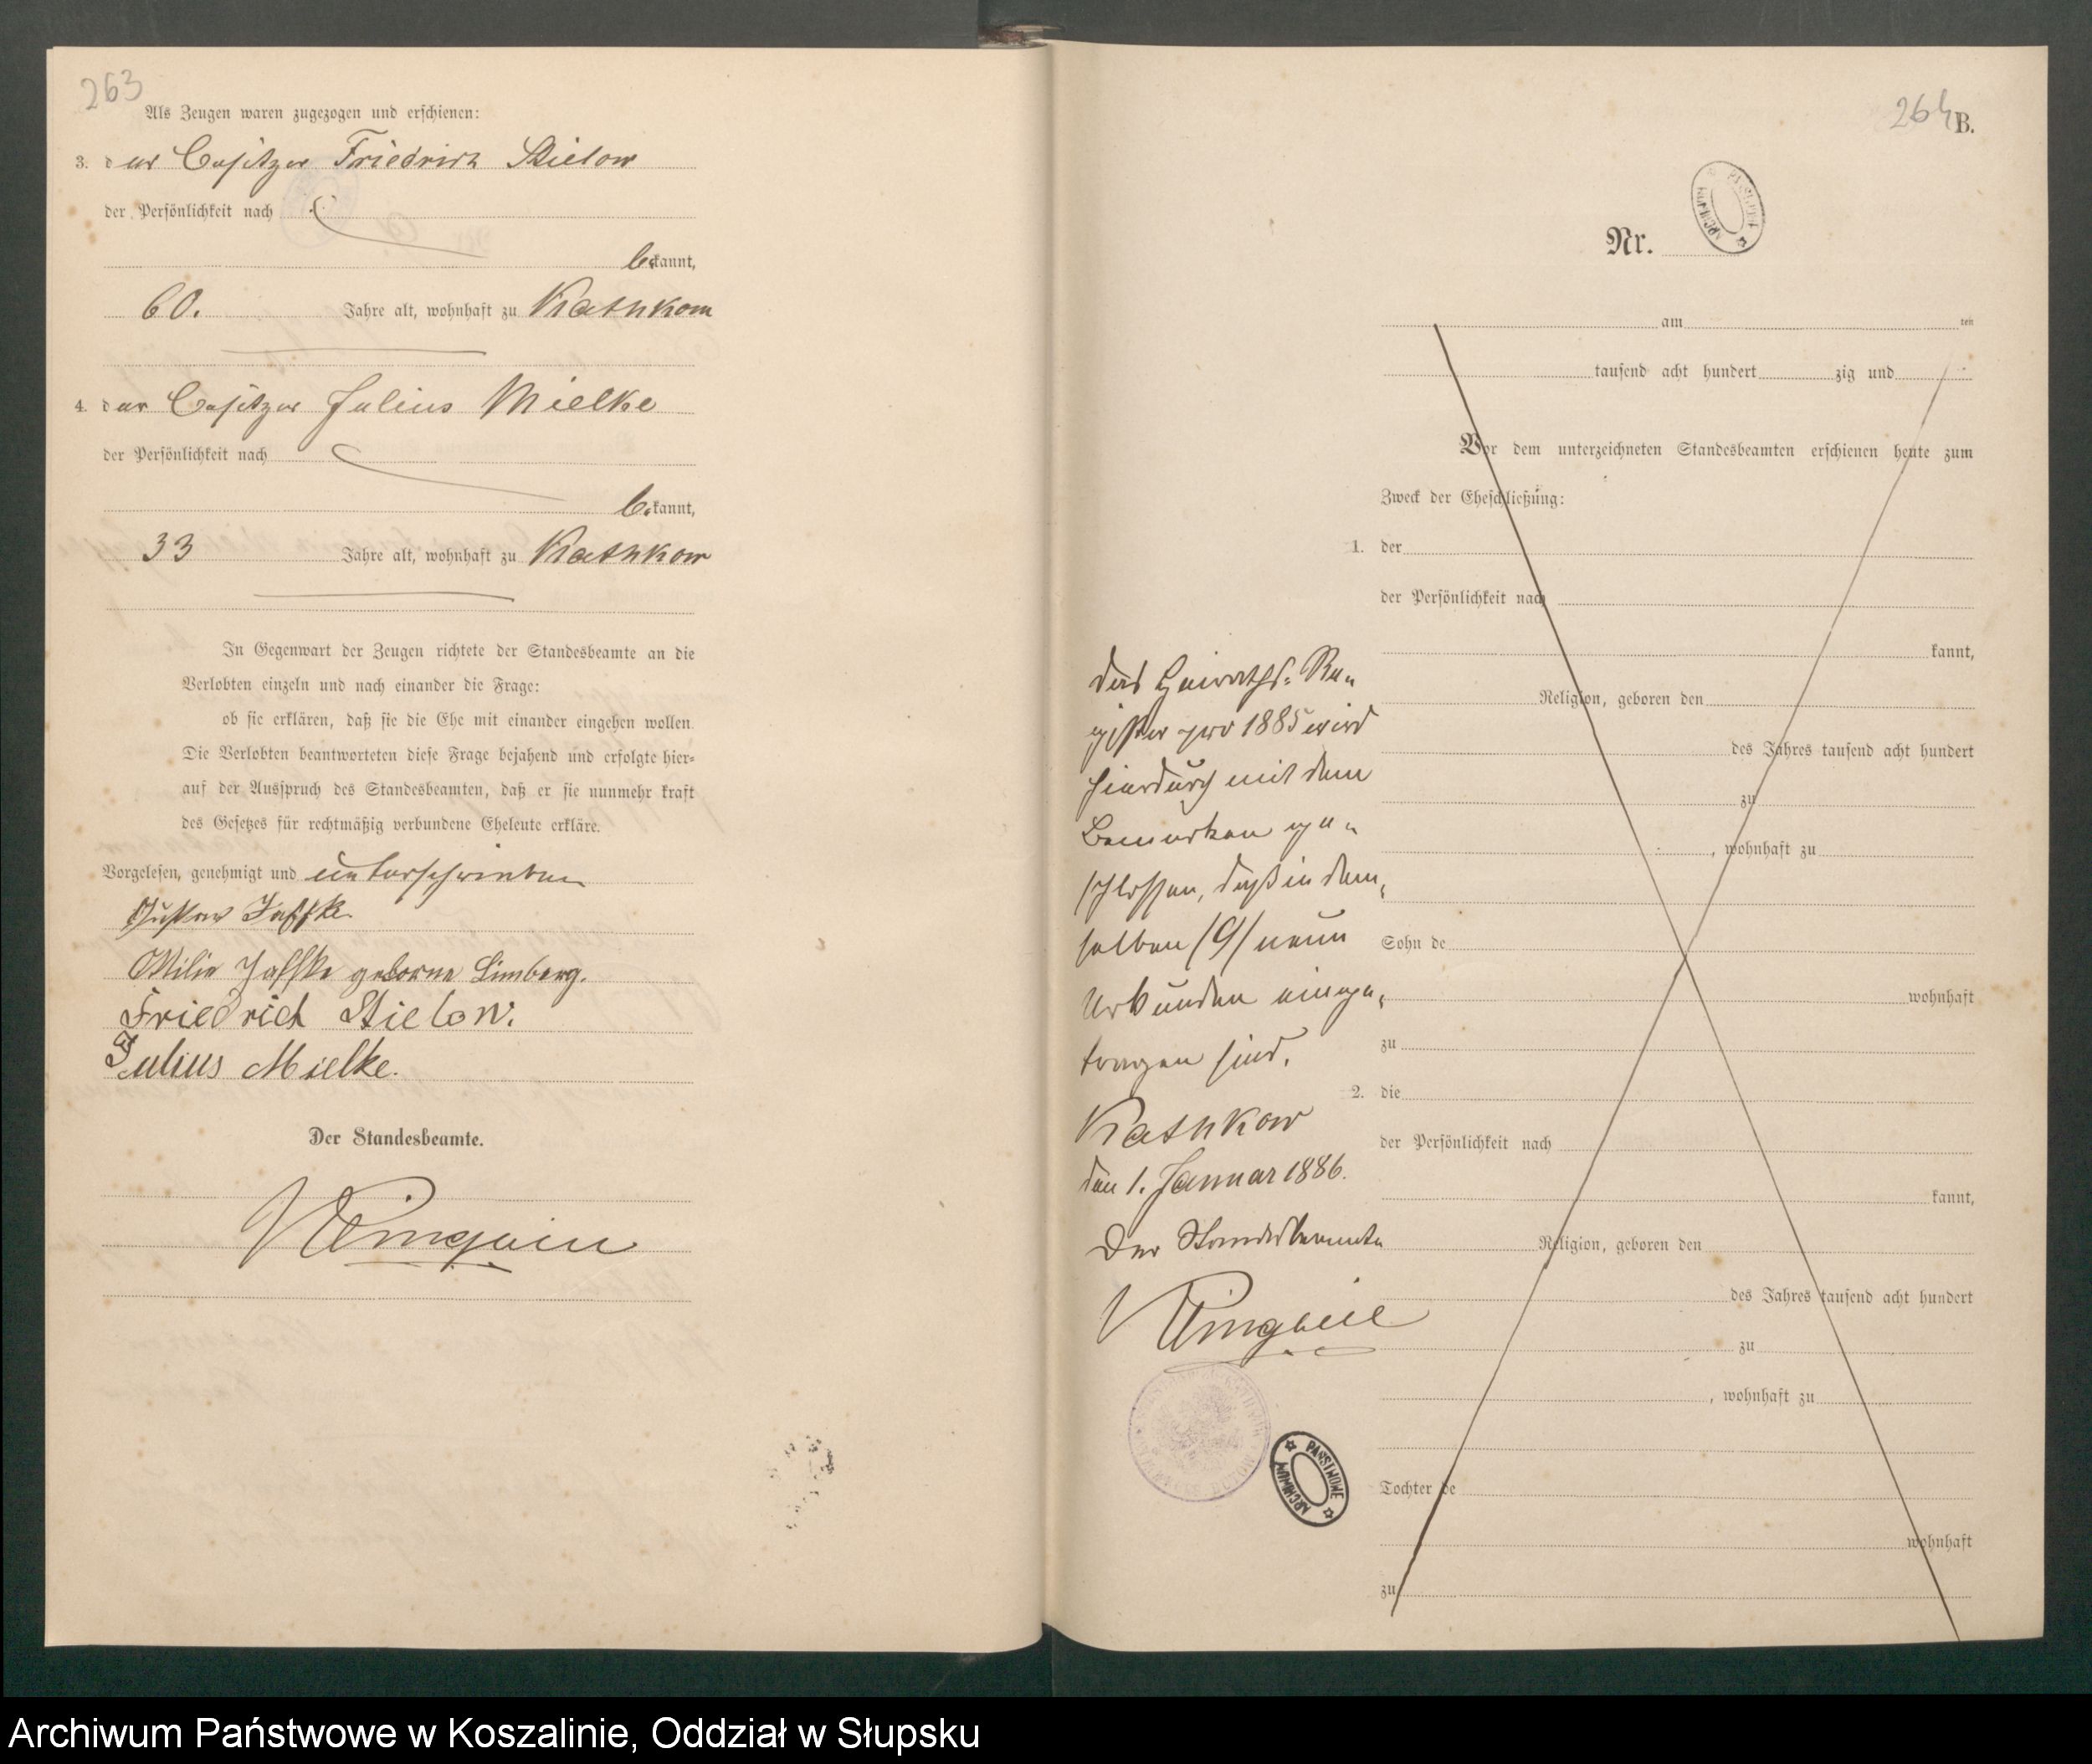 263
Als Zeugen waren zugezogen und erschienen:
3. der Besitzer Friedrich Stielow
der Persönlichkeit nach
bekannt,
60. Jahre alt, wohnhaft zu Kathkow
4. der Besitzer Julius Mielke
der Persönlichkeit nach
bekannt,
33 Jahre alt, wohnhaft zu Kathkow
In Gegenwart der Zeugen richtete der Standesbeamte an die
Verlobten einzeln und nach einander die Frage:
ob sie erklären, daß sie die Ehe mit einander eingehen wollen.
Die Verlobten beantworteten diese Frage bejahend und erfolgte hier-
auf der Ausspruch des Standesbeamten, daß er sie nunmehr kraft
des Gesetzes für rechtmäßig verbundene Eheleute erkläre.
Vorgelesen, genehmigt und unterschrieben
Gustav Jaffke.
Ottilie Jaffke geborne Limberg.
Friedrich Stielow.
Julius Mielke.
Der Standesbeamte.
264 B.
Nr.
am ten
tausend acht hundert zig und
Vor dem unterzeichneten Standesbeamten erschienen heute zum
Zweck der Eheschließung:
1. der
der Persönlichkeit nach
kannt,
Religion, geboren den
des Jahres tausend acht hundert
zu
, wohnhaft zu
Sohn de
wohnhaft
zu
2. die
der Persönlichkeit nach
kannt,
Religion, geboren den
des Jahres tausend acht hundert
zu
, wohnhaft zu
Tochter de
wohnhaft
zu
Das Heiraths-Re-
gister pro 1885 wird
hierdurch mit dem
Bemerken ge-
schlossen, daß in dem-
selben /9/ neun
Urkunden einge-
tragen sind.
Kathkow
den 1. Januar 1886.
Der Standesbeamte
ARCHIWUM PAŃSTWOWE
Archiwum Państwowe w Koszalinie, Oddział w Słupsku